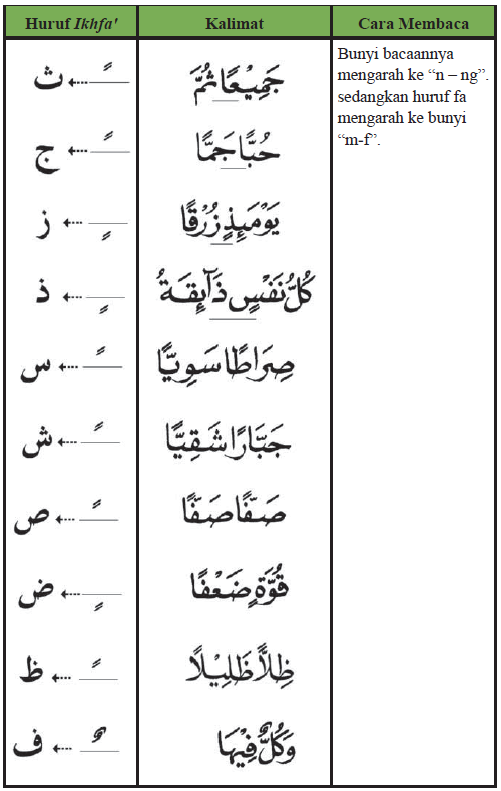 Huruf Ikhfa' Kalimat Cara Membaca
ث ـً جَمِيْعًا ثُمَّ Bunyi bacaannya
mengarah ke “n – ng”.
sedangkan huruf fa
mengarah ke bunyi
“m-f”.
ج ـً حُبًّا جَمًّا
ز ـٍ يَوْمَئِذٍ زُرْقًا
ذ ـٍ كُلُّ نَفْسٍ ذَآئِقَةُ
س ـً صِرَاطًا سَوِيًّا
ش ـً جَبَّارًا شَقِيًّا
ص ـً صَفًّا صَفًّا
ض ـٍ قُوَّةٍ ضَعْفًا
ظ ـً ظِلًّا ظَلِيْلًا
ف ـٌ وَكُلٌّ فِيْهَا